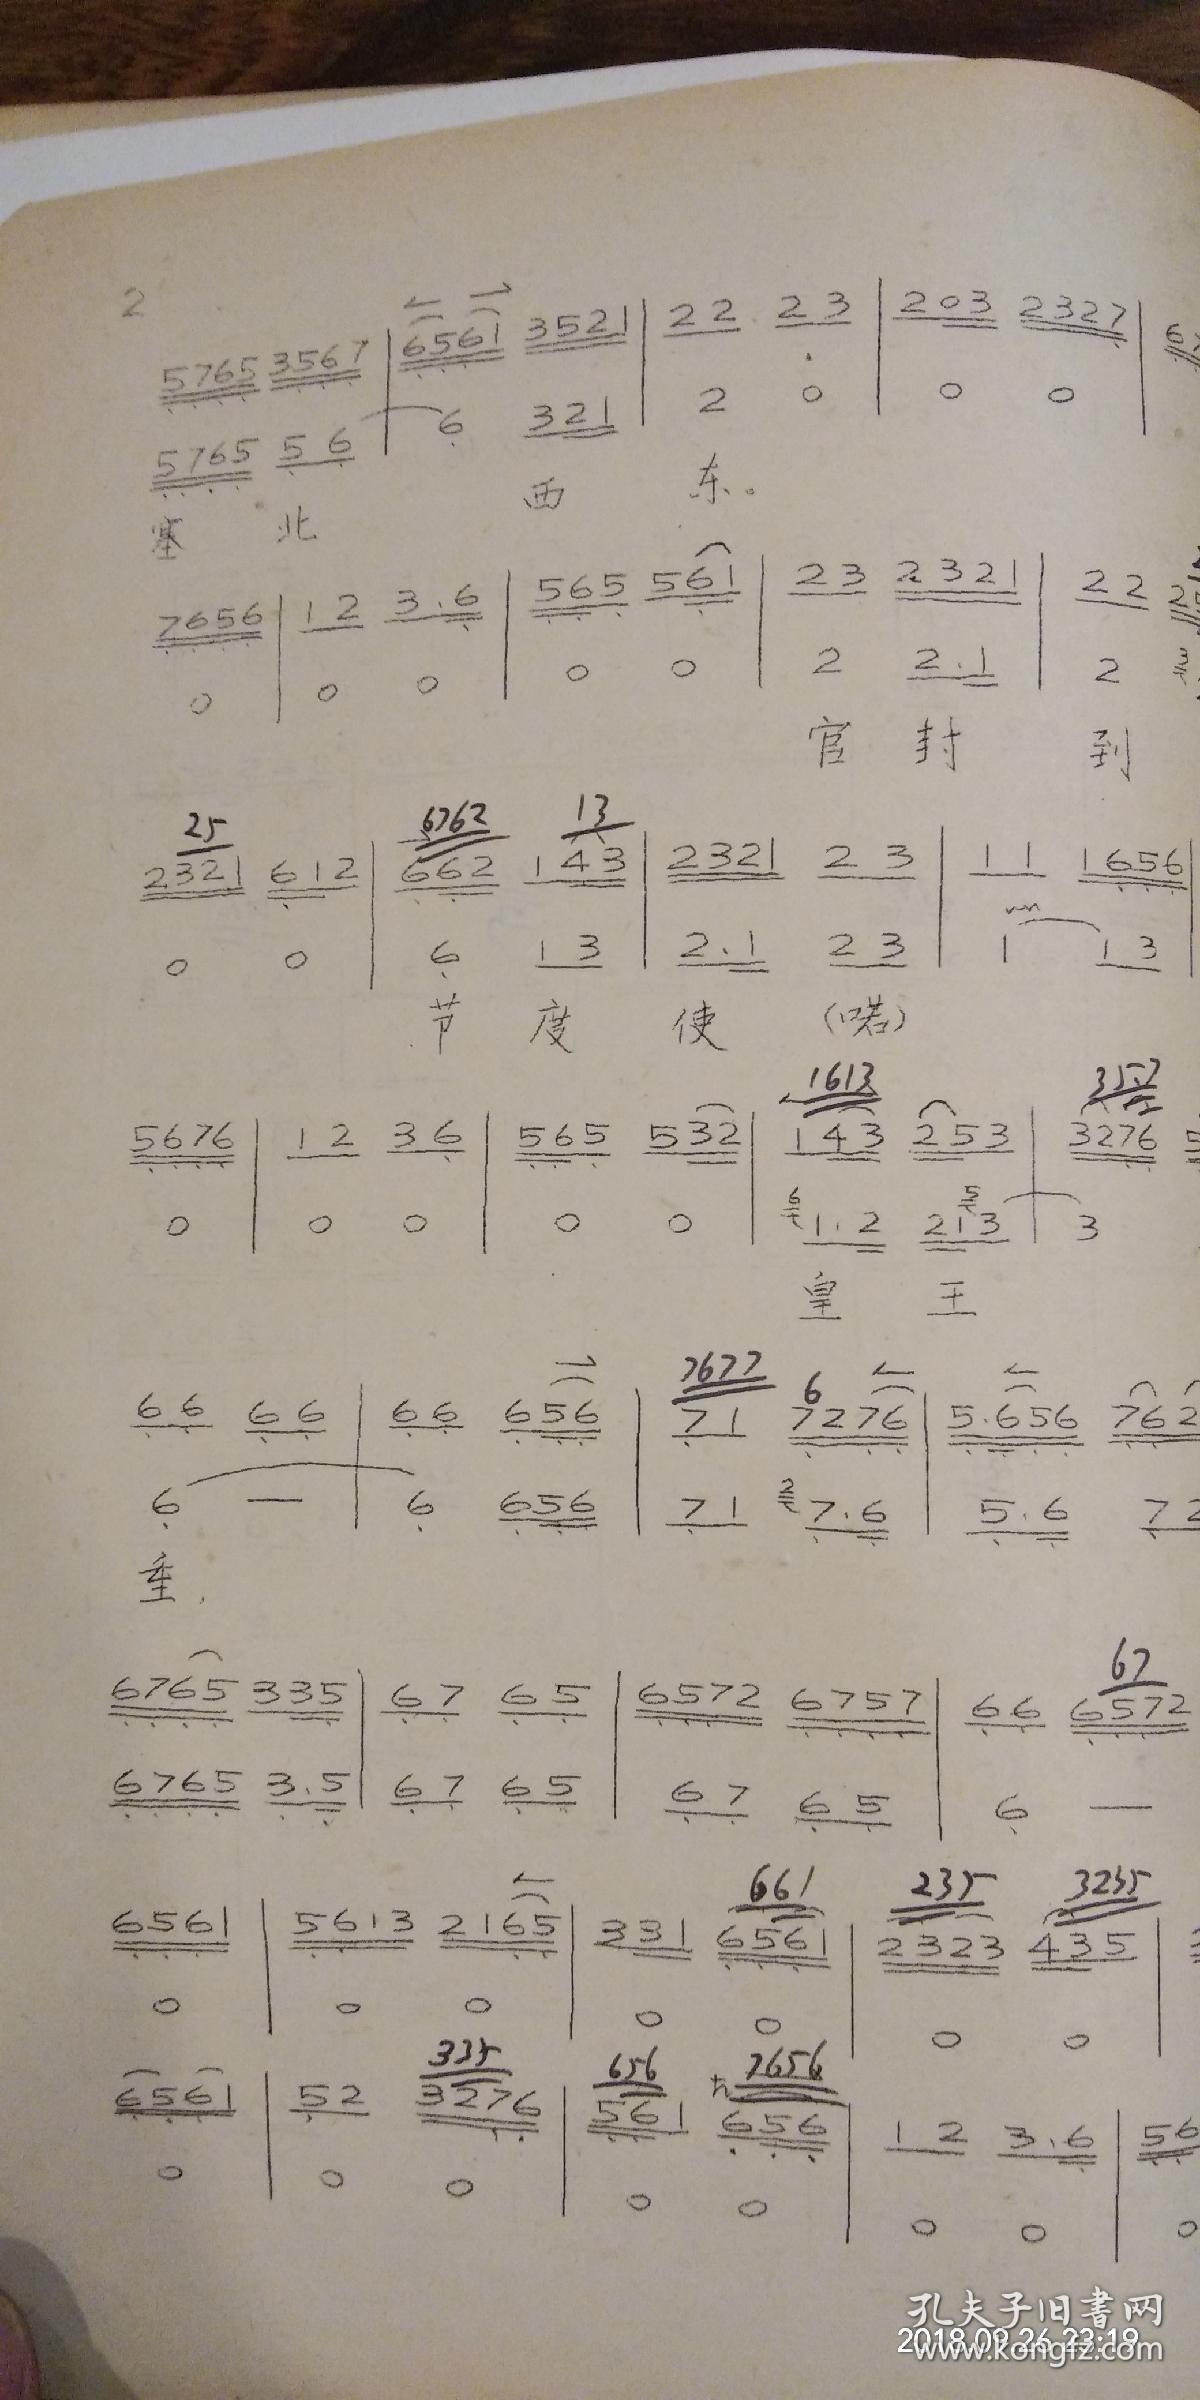 2
5765 3567 | 6561 3521 | 22 23 | 203 2327 |
5765 56 | 6 321 | 2 0 | 0 0 |
塞 北 西 东。
7656 | 12 3.6 | 565 561 | 23 2321 | 22
0 | 0 0 | 0 0 | 2 2.1 | 2
官 封 到
25 6762 13
2321 612 | 662 143 | 2321 23 | 11 1656 |
0 0 | 6 13 | 2.1 23 | 1 13 |
节 度 使 (喏)
1613
5676 | 12 36 | 565 532 | 143 253 | 3276
0 | 0 0 | 0 0 | 6 1.2 5 213 | 3
皇 王
7677 6
66 66 | 66 656 | 71 7276 | 5.656 762
6 — | 6 656 | 71 2 7.6 | 5.6 72
重.
67
6765 335 | 67 65 | 6572 6757 | 66 6572
6765 3.5 | 67 65 | 67 65 | 6 —
661 235 3235
6561 | 5613 2165 | 331 6561 | 2323 435 |
0 | 0 0 | 0 0 | 0 0 |
335 656 7656
6561 | 52 3276 | 561 656 | 12 3.6 | 56
0 | 0 0 | 0 0 | 0 0 | 0
孔夫子旧书网
2018.09.26 23:19
www.kongfz.com